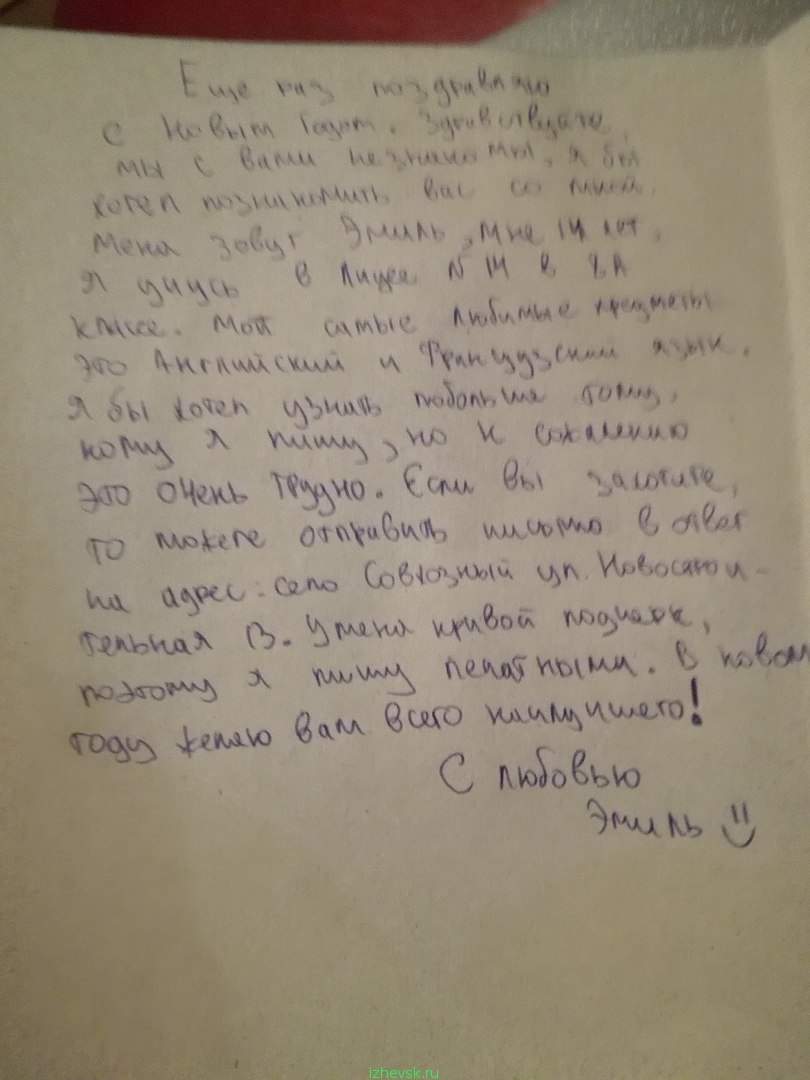 Еще раз поздравляю
с Новым Годом. Здравствуйте,
мы с вами не знакомы, я бы
хотел познакомить вас со мной.
Меня зовут Эмиль, мне 14 лет,
я учусь в Лицее N 14 в 8А
классе. Мои самые любимые предметы
это Английский и Французский язык.
Я бы хотел узнать побольше тому,
кому я пишу, но к сожалению
это очень трудно. Если вы захотите,
то можете отправить письмо в ответ
на адрес: село Совхозный ул. Новострои-
тельная 13. У меня кривой подчерк,
поэтому я пишу печатными. В новом
году желаю вам всего наилучшего!
С любовью
Эмиль
izhevsk.ru